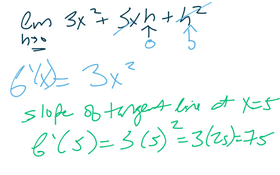 lim 3x² + 3xh + h²
h→0
0 0
f'(x) = 3x²
slope of tangent line at x=5
f'(5) = 3(5)² = 3(25) = 75